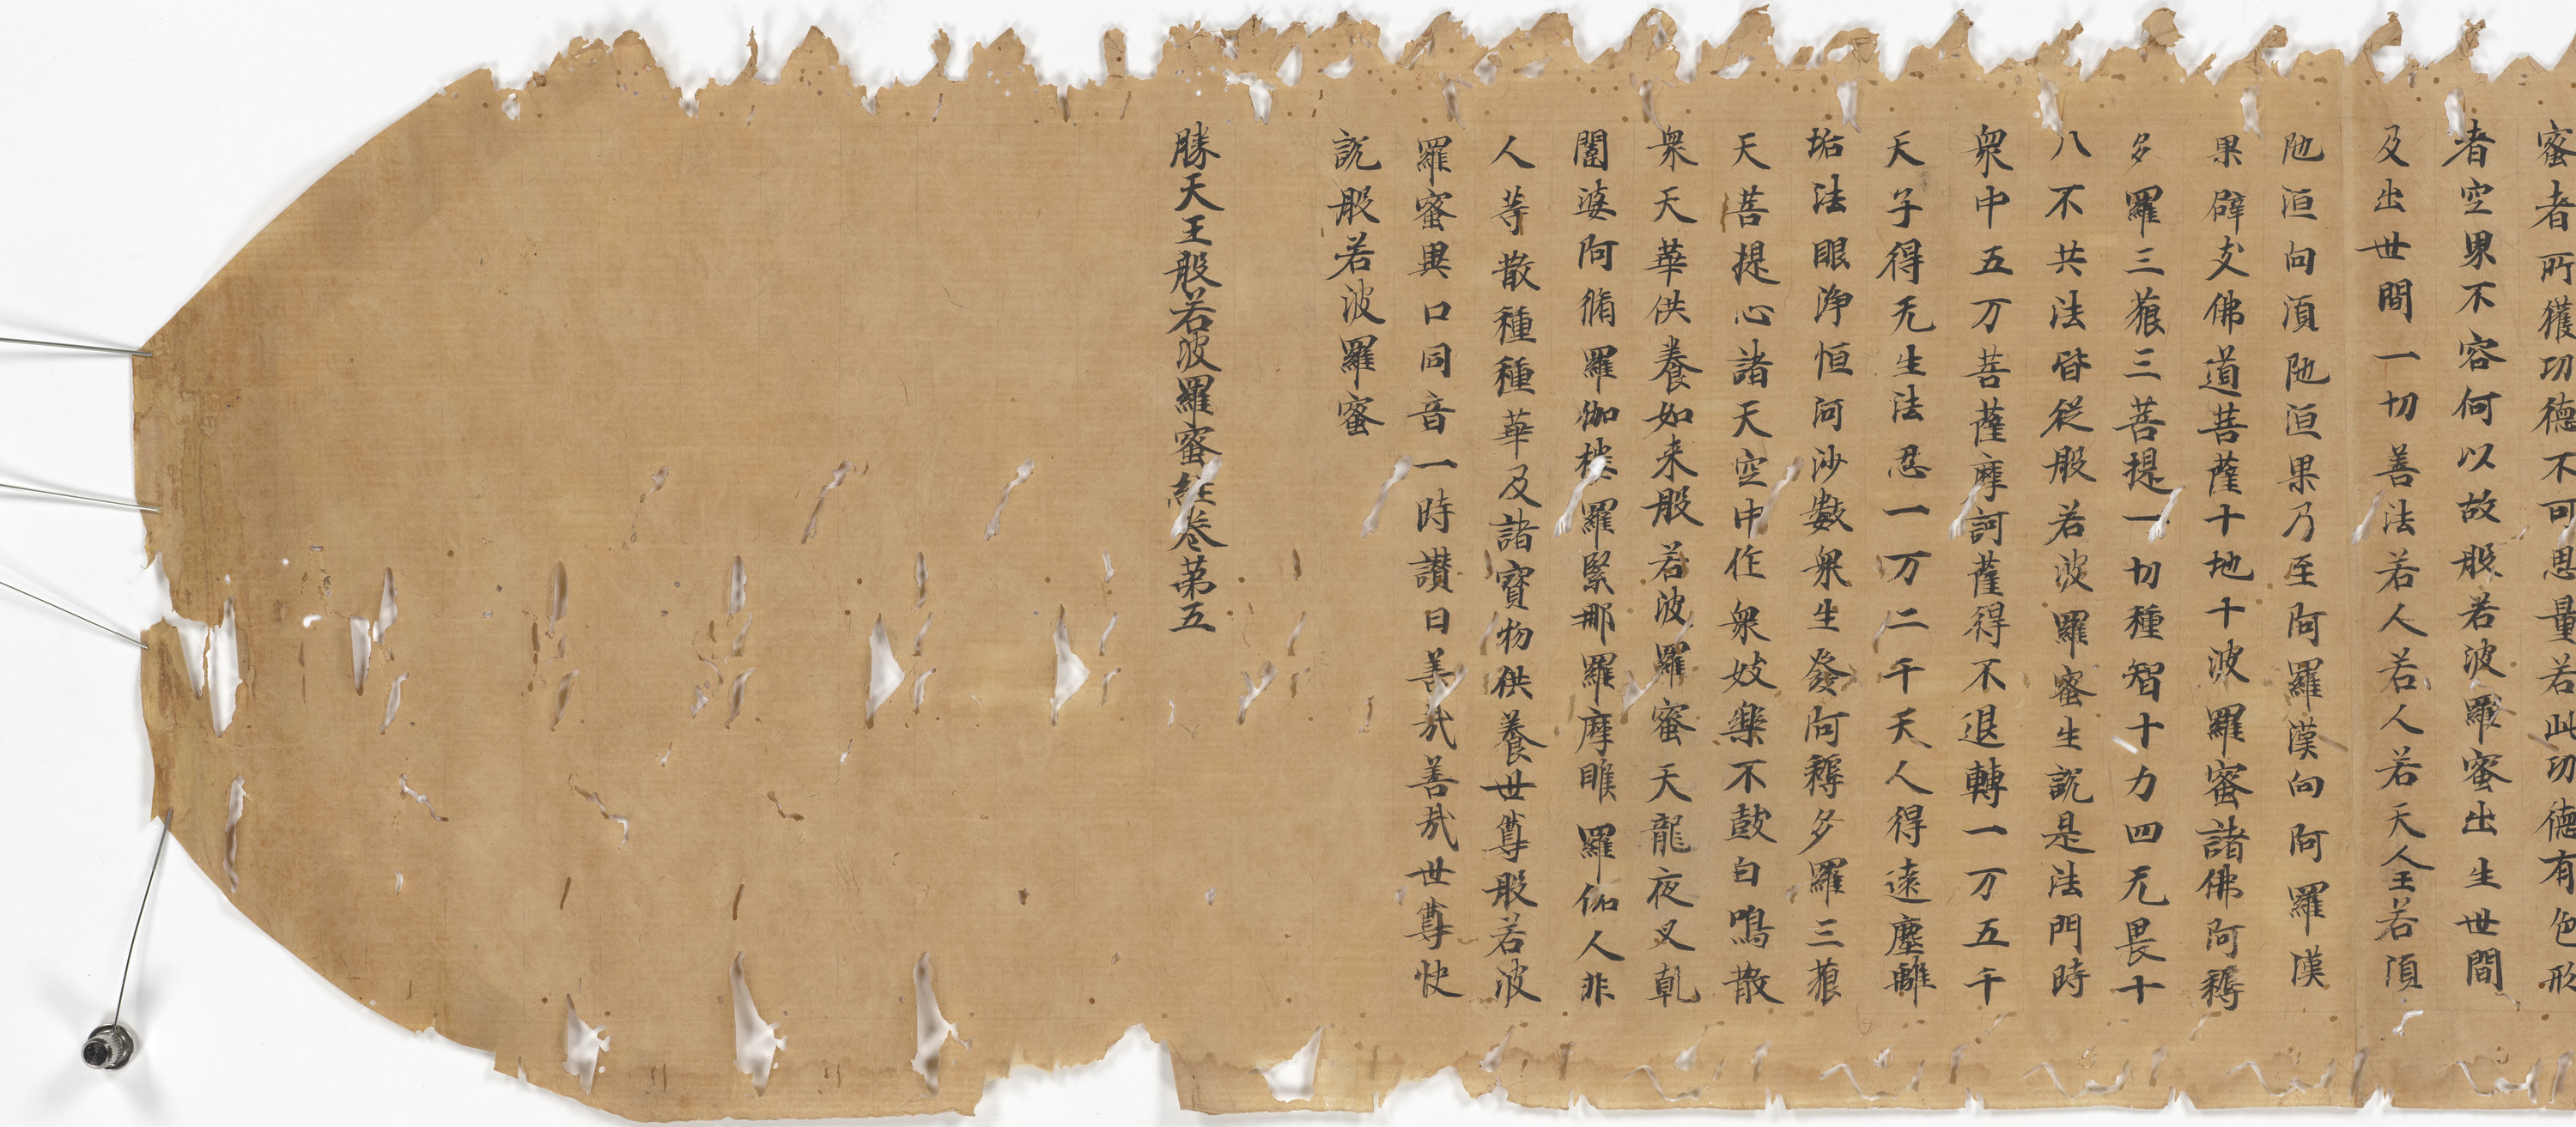 蜜者所獲功德不可思量若此功德有色形
者空界不容何以故般若波羅蜜出生世間
及出世間一切善法若人若人若天人王若湏
陁洹向湏陁洹果乃至阿羅漢向阿羅漢
果辟支佛道菩薩十地十波羅蜜諸佛阿耨
多羅三藐三菩提一切種智十力四无畏十
八不共法皆從般若波羅蜜生說是法門時
衆中五万菩薩摩訶薩得不退轉一万五千
天子得无生法忍一万二千天人得遠塵離
垢法眼淨恒河沙數衆生發阿耨多羅三藐
天菩提心諸天空中作衆妓樂不鼓自鳴散
衆天華供養如来般若波羅蜜天龍夜叉乾
闥婆阿脩羅伽樓羅緊那羅摩睺羅伽人非
人等散種種華及諸寶物供養世尊般若波
羅蜜異口同音一時讃曰善哉善哉世尊快
說般若波羅蜜
勝天王般若波羅蜜經卷第五